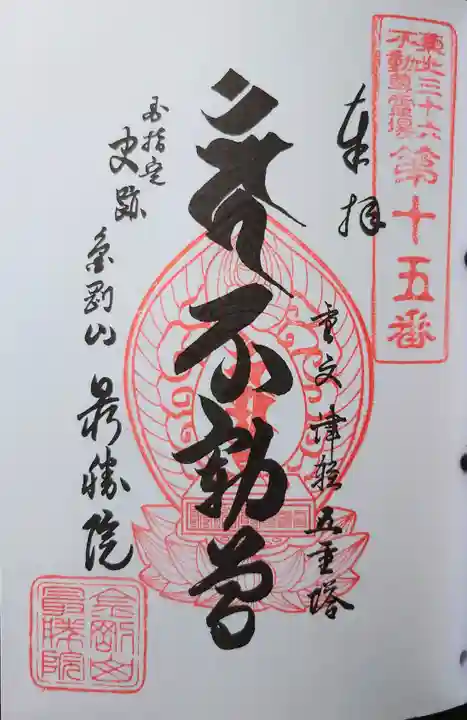 東北三十六
不動尊霊場
第十五番
奉拝
重文津軽五重塔
不動尊
国指定
史跡
金剛山
最勝院
金剛山
最勝院